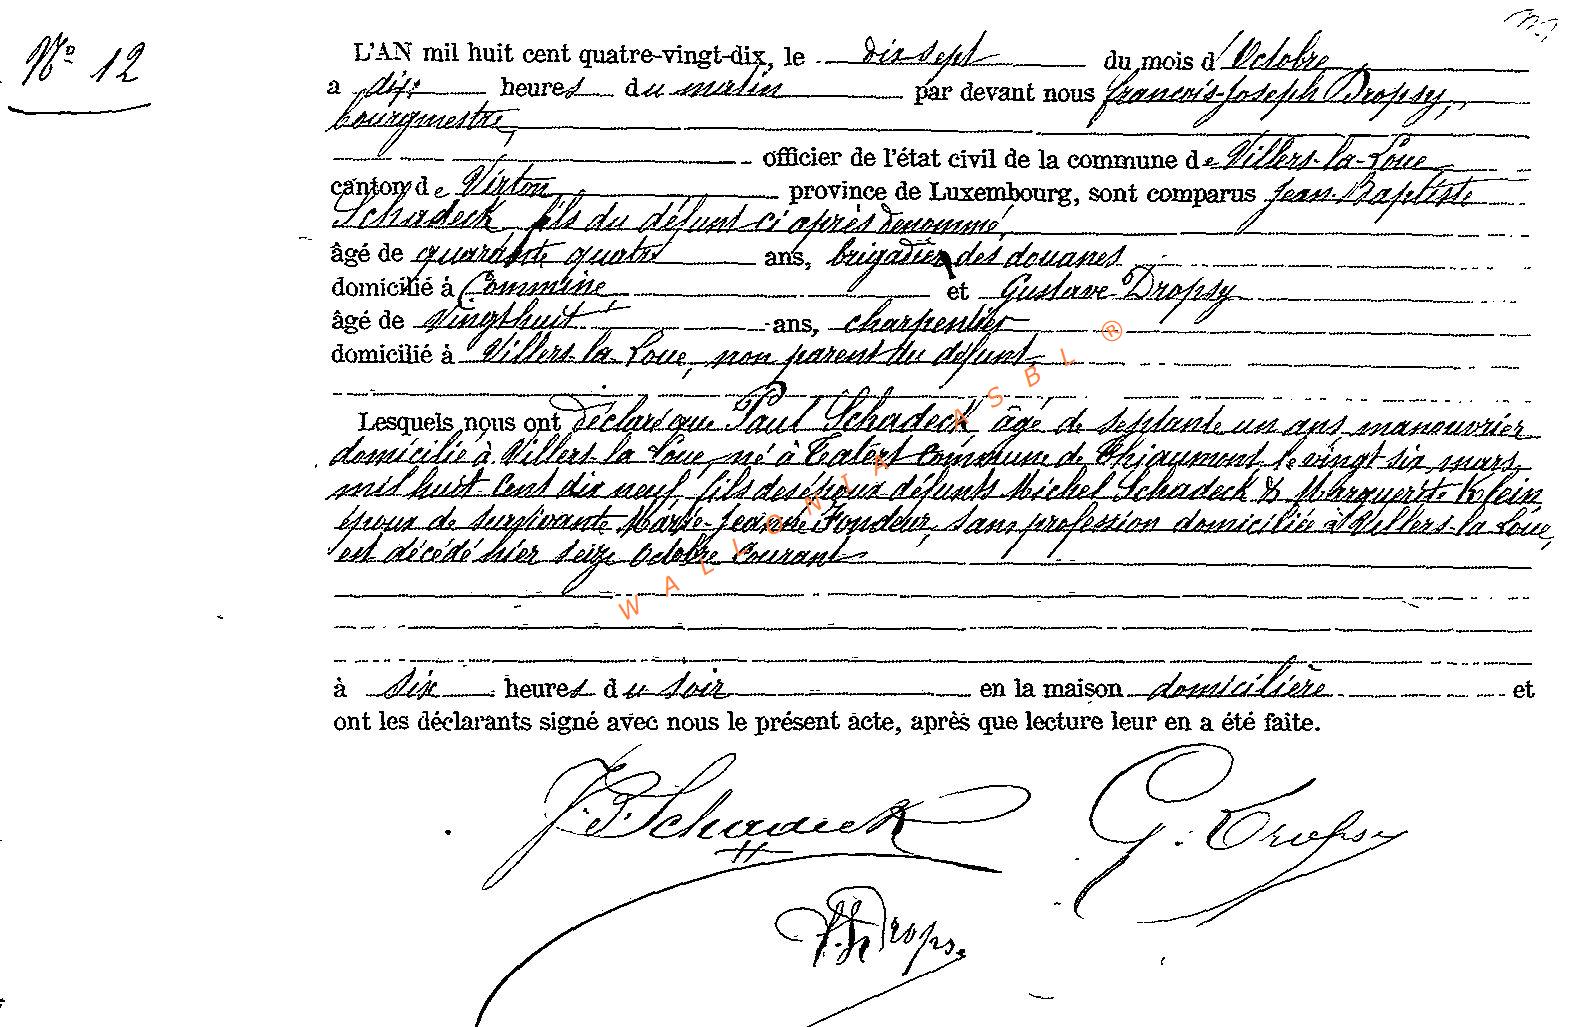 N° 12
L'AN mil huit cent quatre-vingt-dix, le dix sept du mois d'Octobre
a dix heures du matin par devant nous françois-Joseph Dropsy,
bourgmestre,
officier de l'état civil de la commune de Villers-la-Loue
canton de Virton province de Luxembourg, sont comparus Jean-Baptiste
Schadeck fils du défunt ci après dénommé,
âgé de quarante quatre ans, brigadier des douanes
domicilié à Commine et Gustave Dropsy
âgé de vingt huit ans, charpentier
domicilié à Villers la Loue, non parent du défunt,
Lesquels nous ont déclaré que Paul Schadeck âgé de septante un ans manouvrier
domicilié à Villers-la Loue, né à Tatert commune de Thiaumont le vingt six mars
mil huit cent dix neuf, fils des époux défunts Michel Schadeck & Marguerite Klein
époux de survivante Marie-Jeanne Fondeur, sans profession domiciliée à Villers-la Loue,
est décédé hier seize Octobre courant
à six heures du soir en la maison domicilière et
ont les déclarants signé avec nous le présent acte, après que lecture leur en a été faite.
J.B. Schadeck G. Dropsy
Dropsy
WALLONIA ASBL ®